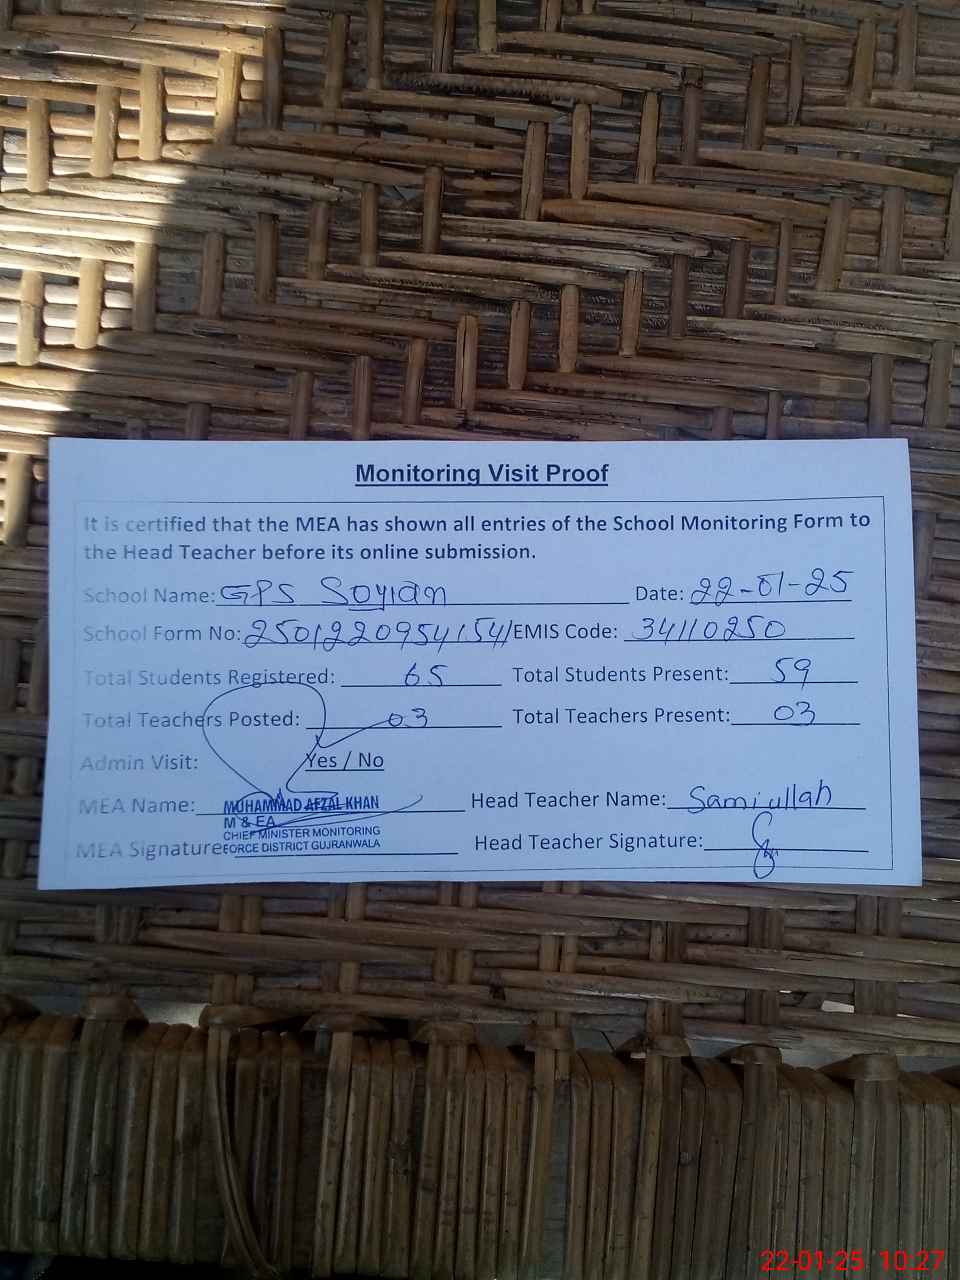 Monitoring Visit Proof
It is certified that the MEA has shown all entries of the School Monitoring Form to
the Head Teacher before its online submission.
School Name: GPS Soyian Date: 22-01-25
School Form No: 2501220954154 EMIS Code: 34110250
Total Students Registered: 65 Total Students Present: 59
Total Teachers Posted: 03 Total Teachers Present: 03
Admin Visit: Yes / No
MEA Name: MUHAMMAD AFZAL KHAN Head Teacher Name: Sami ullah
M & EA
CHIEF MINISTER MONITORING
MEA Signature: FORCE DISTRICT GUJRANWALA Head Teacher Signature:
22-01-25 10:27